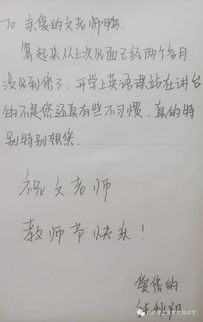 To 亲爱的文老师鸭:
算起来从上次见面已经两个多月
没见到您了,开学上英语课站在讲台
的不是您还真有些不习惯,真的特
别特别想您.
祝文老师
教师节快乐!
爱您的